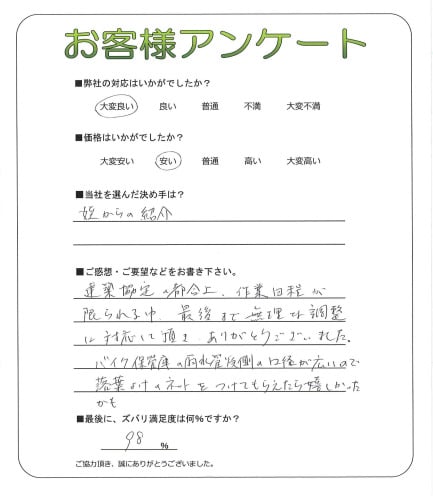 お客様アンケート
■弊社の対応はいかがでしたか?
大変良い 良い 普通 不満 大変不満
■価格はいかがでしたか?
大変安い 安い 普通 高い 大変高い
■当社を選んだ決め手は?
姪からの紹介
■ご感想・ご要望などをお書き下さい。
建築協定の都合上、作業日程が
限られる中、最後まで無理な調整
に対応して頂き ありがとうございました。
バイク保管庫の雨水管後側の口径が広いので
落葉よけのネットをつけてもらえたら嬉しかった
かも
■最後に、ズバリ満足度は何%ですか?
98 %
ご協力頂き、誠にありがとうございました。